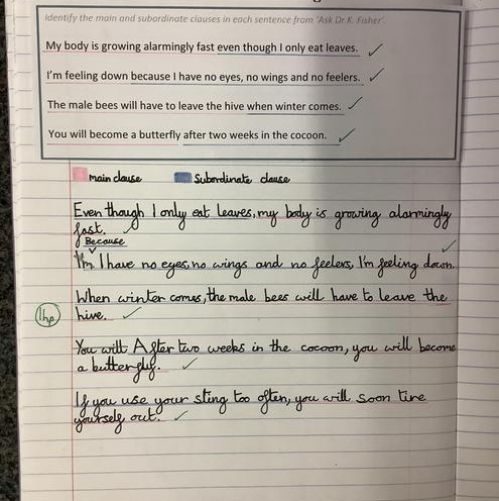 Identify the main and subordinate clauses in each sentence from 'Ask Dr K. Fisher'.
My body is growing alarmingly fast even though I only eat leaves.
I'm feeling down because I have no eyes, no wings and no feelers.
The male bees will have to leave the hive when winter comes.
You will become a butterfly after two weeks in the cocoon.
main clause Subordinate clause
Even though I only eat leaves, my body is growing alarmingly
fast.
Because
I'm I have no eyes, no wings and no feelers, I'm feeling down.
When winter comes, the male bees will have to leave the
hive.
You will After two weeks in the cocoon, you will become
a butterfly.
If you use your sting too often, you will soon tire
yourself out.